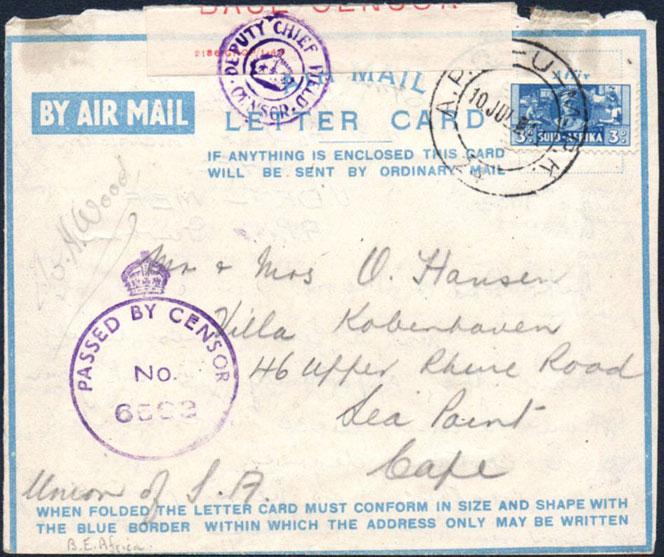 BASE CENSOR
DEPUTY CHIEF FIELD CENSOR
AIR MAIL
BY AIR MAIL
LETTER CARD
IF ANYTHING IS ENCLOSED THIS CARD
WILL BE SENT BY ORDINARY MAIL
A.P.O.
10 JUL
3D SUID-AFRIKA 3D
W. H. Wood
Mr & Mrs O. Hansen
Villa Kobenhaven
46 Upper Rhine Road
Sea Point
Cape
PASSED BY CENSOR
No.
Union of S.A.
WHEN FOLDED THE LETTER CARD MUST CONFORM IN SIZE AND SHAPE WITH
THE BLUE BORDER WITHIN WHICH THE ADDRESS ONLY MAY BE WRITTEN
B.E. Africa.